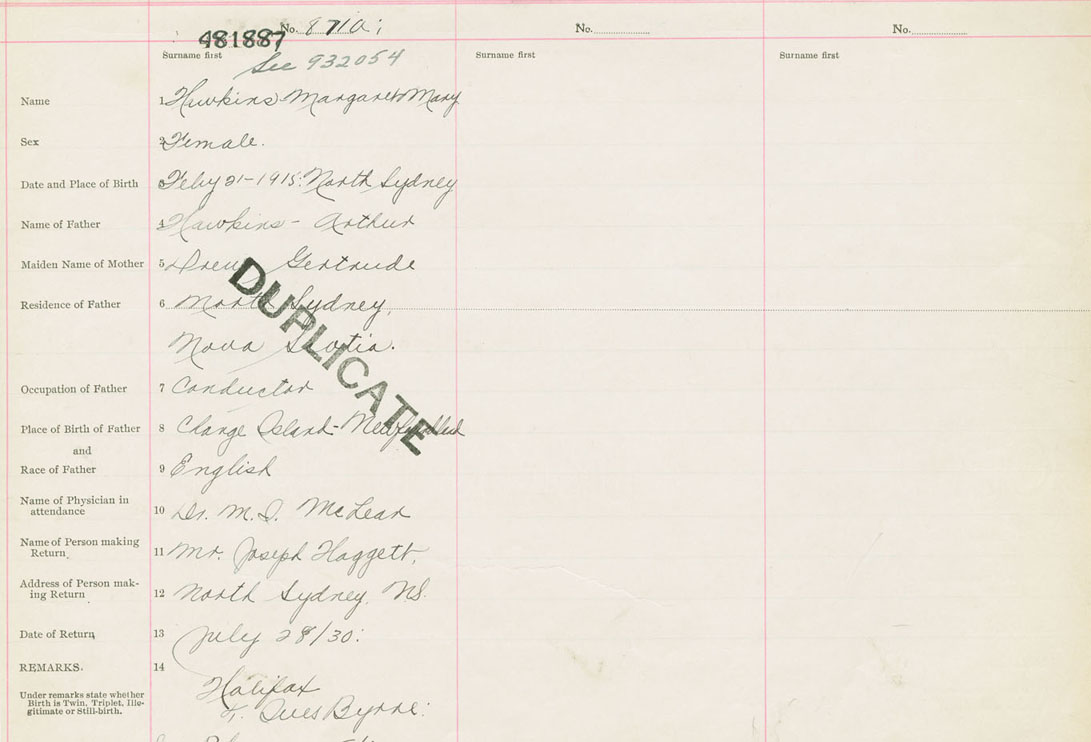 No. 8710; No. No.
481887
Surname first Surname first Surname first
See 932054
Name 1 Hawkins Margaret Mary
Sex 2 Female.
Date and Place of Birth 3 Feby 21-1915: North Sydney
Name of Father 4 Hawkins - Arthur
Maiden Name of Mother 5 Drew Gertrude
Residence of Father 6 North Sydney,
Nova Scotia.
DUPLICATE
Occupation of Father 7 Conductor
Place of Birth of Father 8 Change Island -
and
Race of Father 9 English
Name of Physician in
attendance 10 Dr. M. McLean
Name of Person making
Return. 11 Mr. Joseph Haggett.
Address of Person mak-
ing Return 12 North Sydney, NS.
Date of Return 13 July 28/30:
REMARKS. 14
Halifax
Under remarks state whether
Birth is Twin, Triplet, Ille-
gitimate or Still-birth.
Byrne: